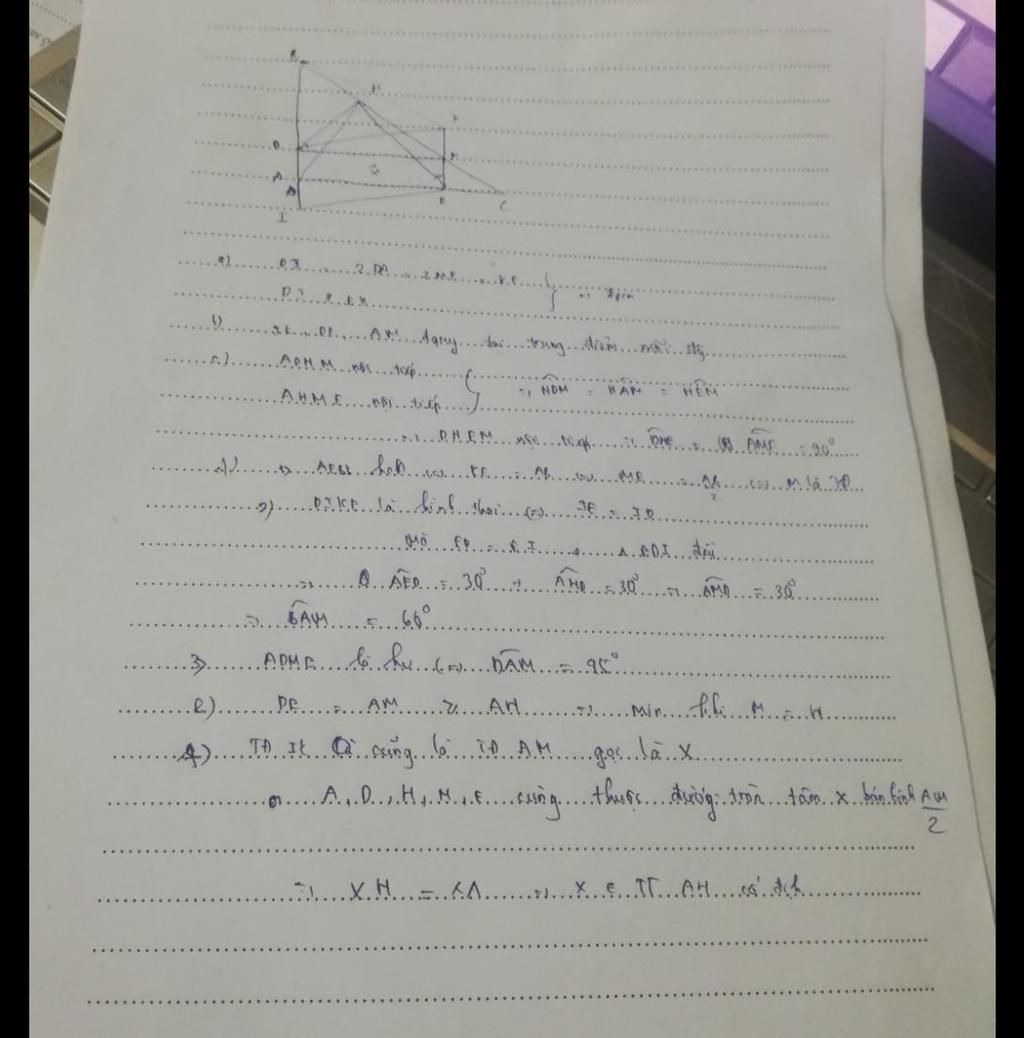 B
H
D
K
M
A
E
C
I
a) DI = 2.DA = 2ME = KE
DI // EK
b) IK, DE, AM đồng tại trung điểm mỗi đg
c) ADHM nội tiếp
AHME nội tiếp
=> HDM = HAM = HEM
=> DHEM nội tiếp => DHE = AME = 90°
d) 1) AEKB hcn <=> KE = AB <=> ME = AB/2 <=> M là TĐ
2) DIKE là hình thoi <=> IE = ID
Mà ED = EI => Δ EDI đều
=> AED = 30° => AHD = 30° => AMD = 30°
=> BAM = 60°
3) ADME là hv <=> DAM = 45°
e) DE = AM ≥ AH => min khi M = H
f) TĐ IK cũng là TĐ AM gọi là X
A, D, H, M, E cùng thuộc đường tròn tâm X bán kính AM/2
=> XH = XA => X ∈ TT AH cố định